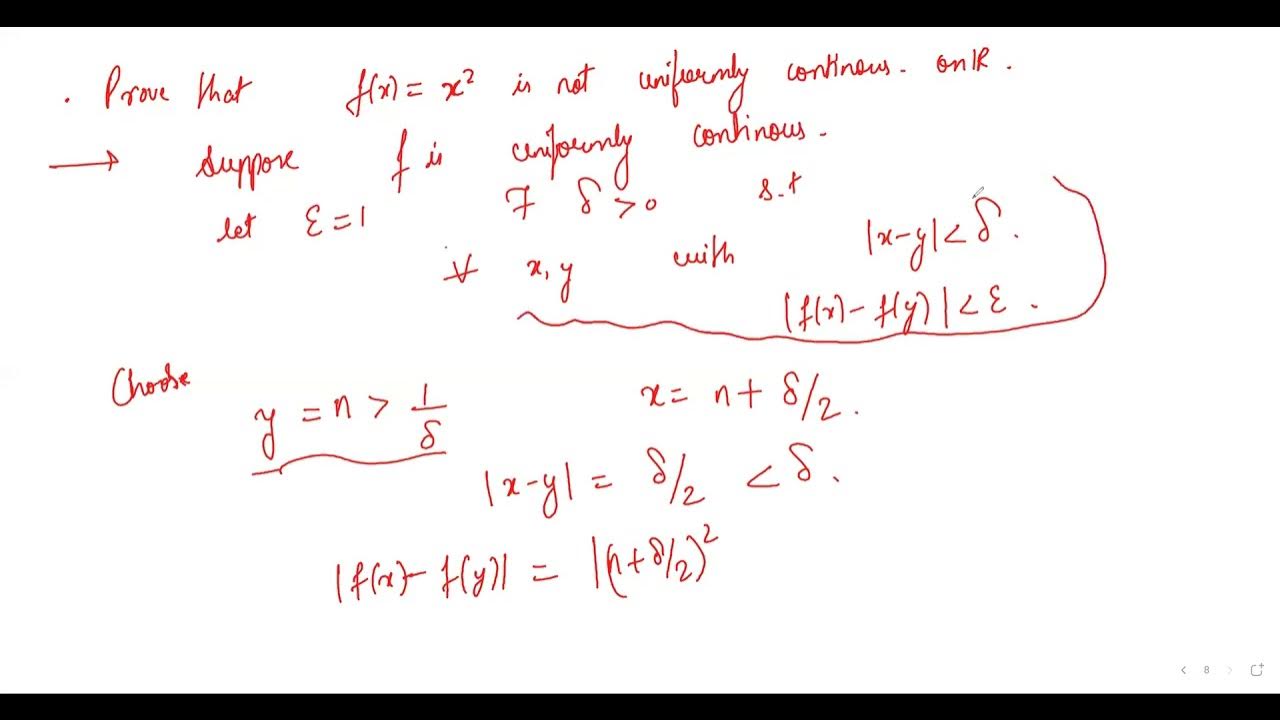 . Prove that f(x) = x² is not uniformly continous. on ℝ.
→ Suppose f is uniformly continous.
let ε = 1 ∃ δ > 0 s.t
∀ x, y with |x-y| < δ.
|f(x) - f(y)| < ε.
Choose y = n > 1/δ x = n + δ/2.
|x-y| = δ/2 < δ.
|f(x) - f(y)| = |(n + δ/2)²
< 8 >